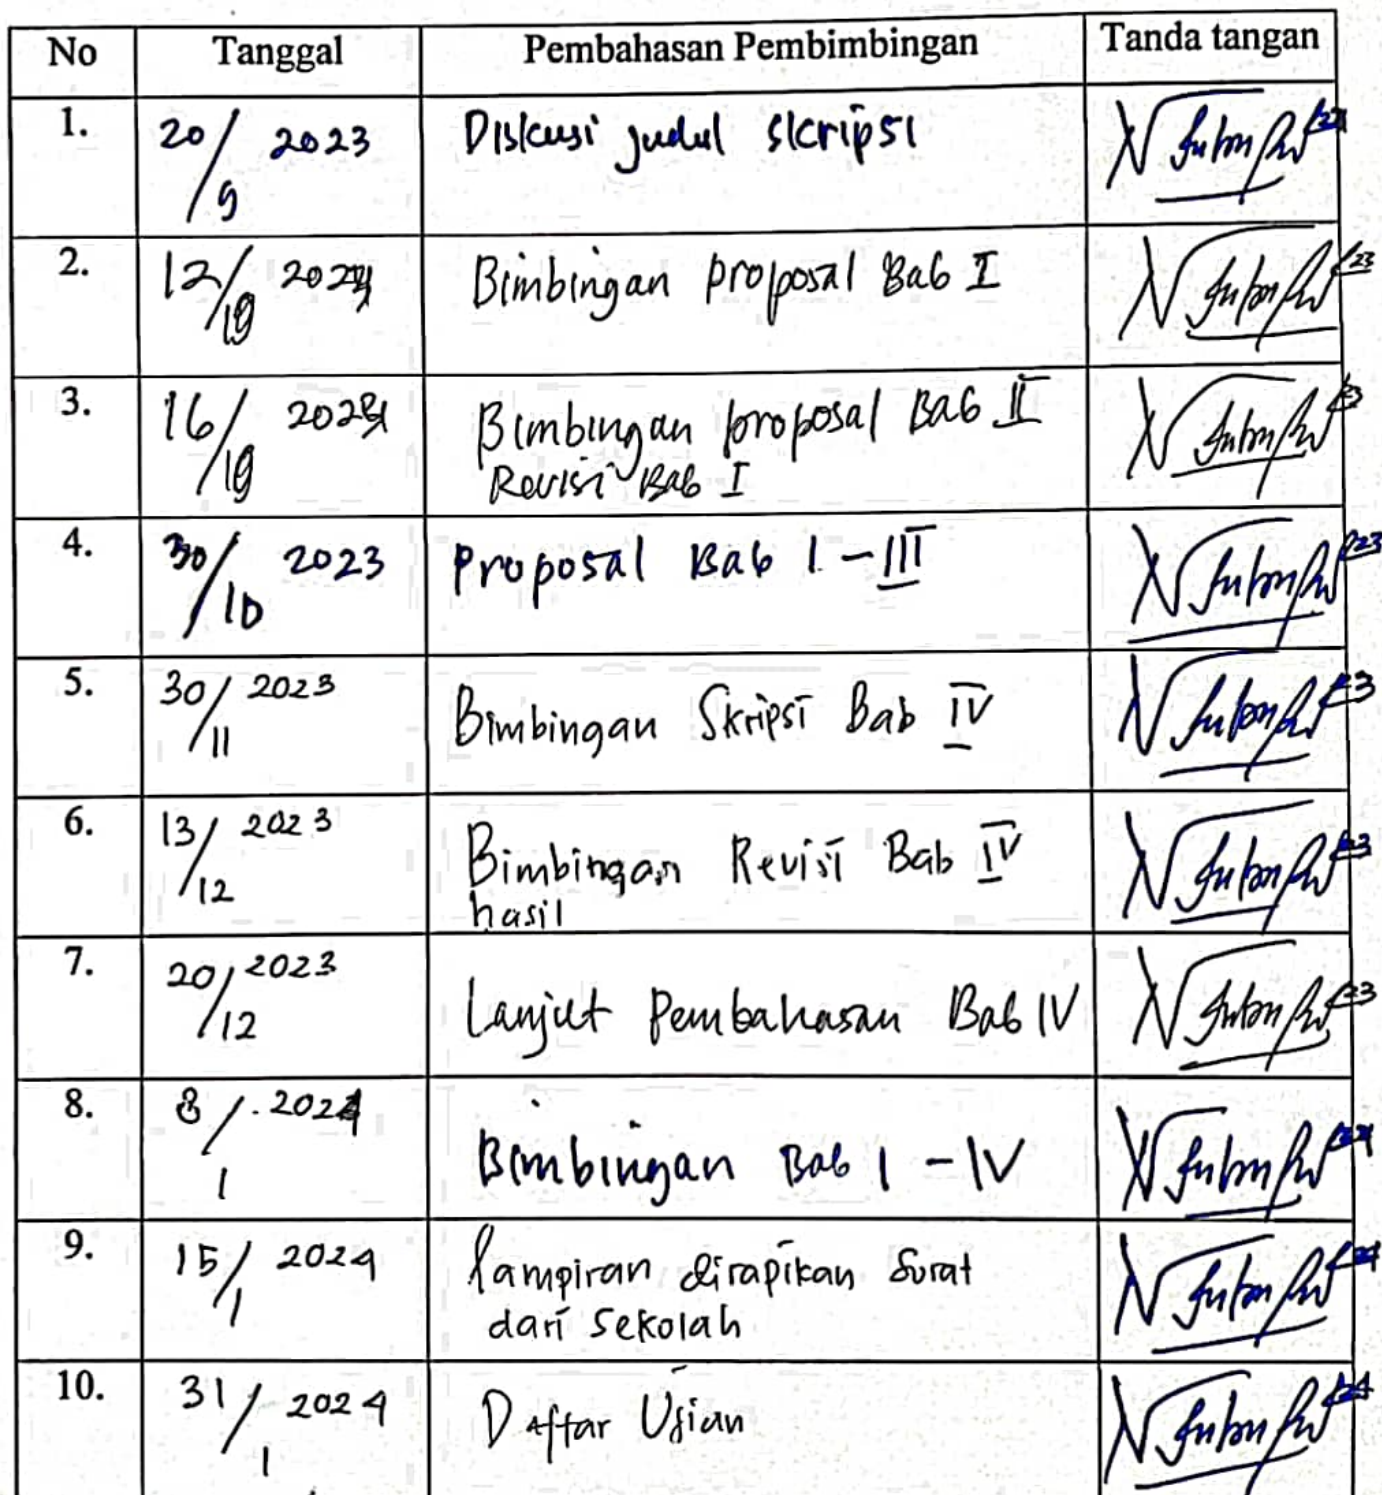 No Tanggal Pembahasan Pembimbingan Tanda tangan
1. 20/9 2023 Diskusi judul skripsi
2. 12/ Bimbingan proposal Bab I
3. 16/ Bimbingan proposal Bab II
Revisi Bab I
4. 30/10 2023 Proposal Bab I - III
5. 30/11 2023 Bimbingan Skripsi Bab IV
6. 13/12 2023 Bimbingan Revisi Bab IV
hasil
7. 20/12 2023 Lanjut Pembahasan Bab IV
8. 8/1 2024 Bimbingan Bab I - IV
9. 15/1 2024 lampiran dirapikan Surat
dari sekolah
10. 31/1 2024 Daftar Ujian